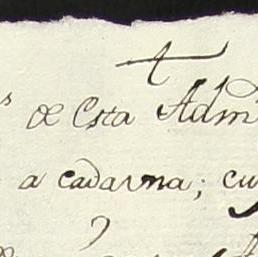 de Esta Adm
a cadarma; cu